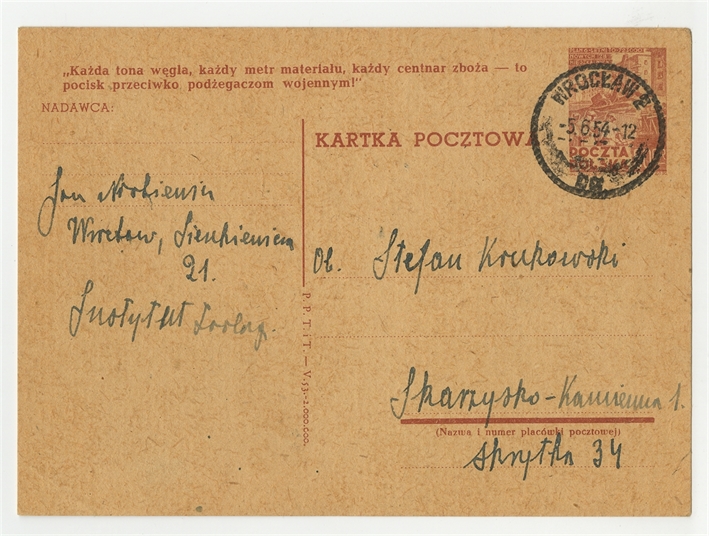 „Każda tona węgla, każdy metr materiału, każdy centnar zboża — to
pocisk przeciwko podżegaczom wojennym!"
NADAWCA:
KARTKA POCZTOWA
WROCŁAW 2
-5.6.54-12
POCZTA
Jan
Wrocław, Sienkiewicza
21.
Instytut Zoolog.
Ob. Stefan Krukowski
P. P. T. i T. — V-53-2.000.000.
Skarżysko-Kamienna 1.
(Nazwa i numer placówki pocztowej)
skrytka 34